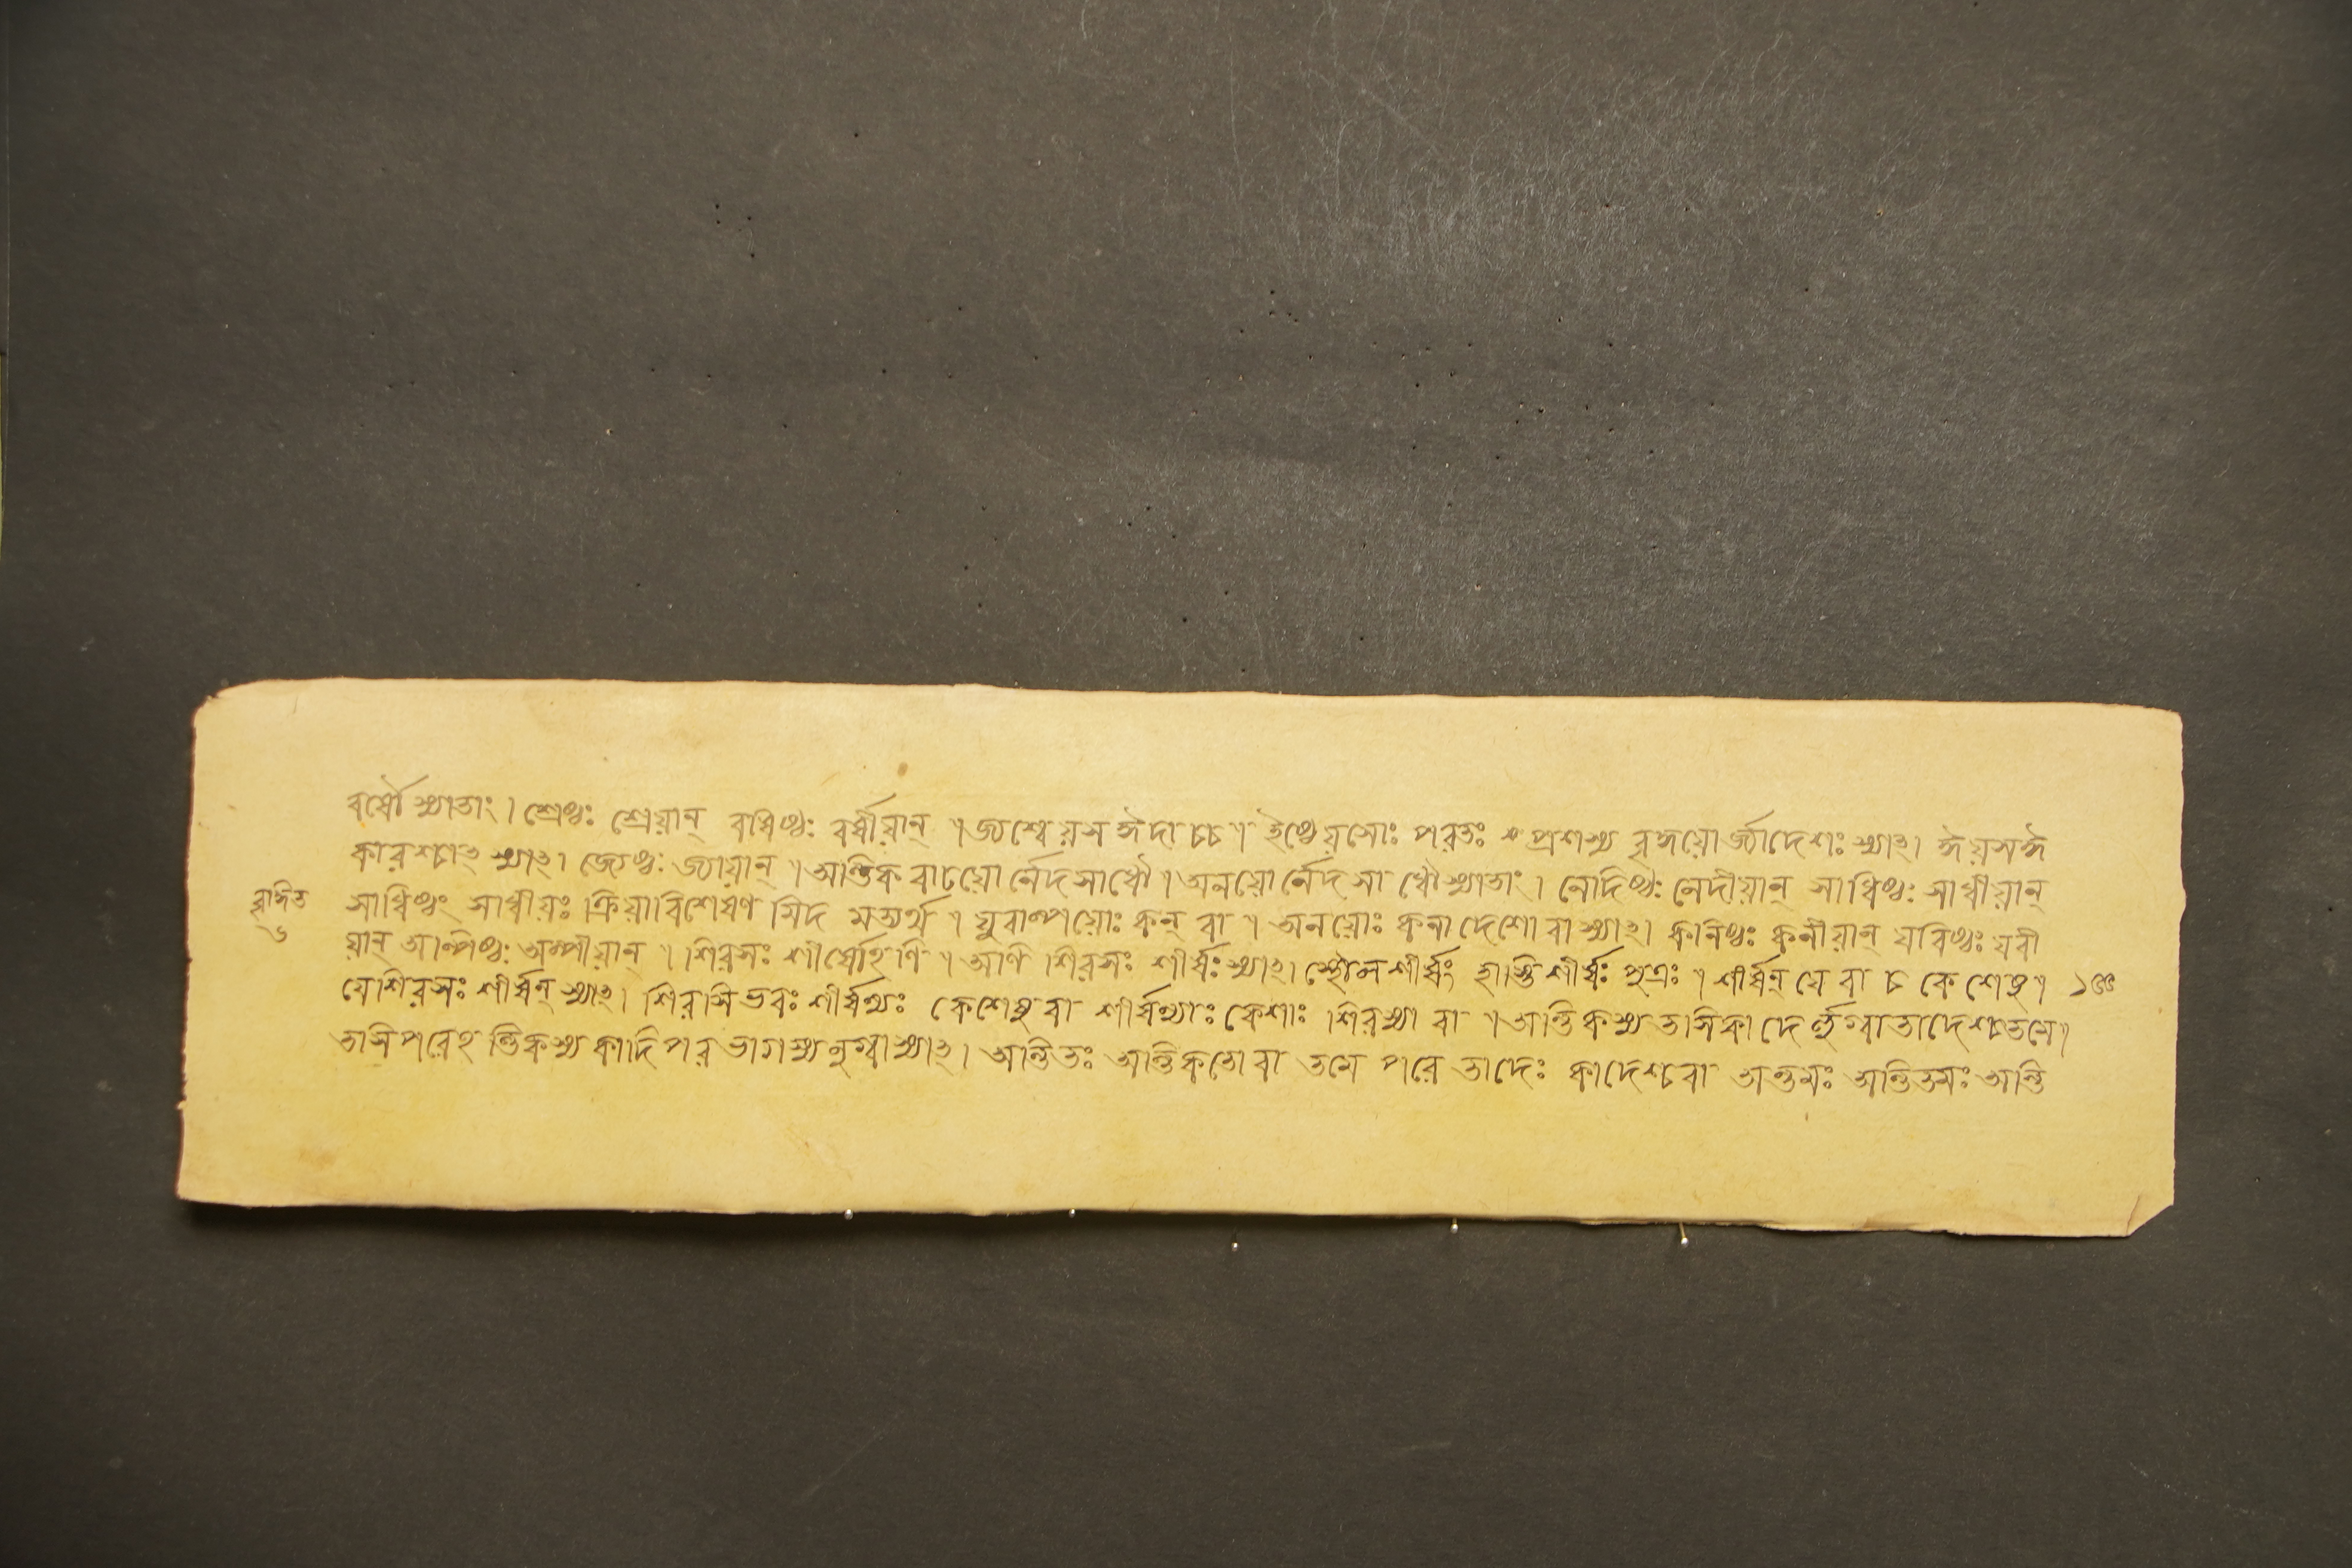 বর্ষৌ স্যাতাং। শ্রেষ্ঠঃ শ্রেয়ান্ বর্ষিষ্ঠঃ বর্ষীয়ান্ । জ্যশ্বেয়স ঈদাচচ । ইষ্ঠেয়সোঃ পরতঃ প্রশস্য বৃদ্ধয়োর্জ্যাদেশঃ স্যাৎ। ঈয়সঈ
কারশ্চাৎ স্যাৎ। জ্যেষ্ঠঃ জ্যায়ান্ । অন্তিক বাঢয়ো র্নেদসাধৌ । অনয়ো র্নেদ সা ধৌ স্যাতাং। নেদিষ্ঠঃ নেদীয়ান্ সাধিষ্ঠঃ সাধীয়ান্
সাধিষ্ঠং সাধীয়ঃ ক্রিয়াবিশেষণ মিদ মত্যর্থে । যুবাল্পয়োঃ কন্ বা । অনয়োঃ কনাদেশো বা স্যাৎ। কনিষ্ঠঃ কনীয়ান্ যবিষ্ঠঃ যবী
য়ান্ অল্পিষ্ঠঃ অল্পীয়ান্ । শিরসঃ শীর্ষোঽণি । অণি শিরসঃ শীর্ষঃ স্যাৎ। স্থৌলশীর্ষং হাস্তিশীর্ষঃ পুত্রঃ । শীর্ষন্ যে বা চ কে শেষু।
যেশিরসঃ শীর্ষন্ স্যাৎ। শিরসিভবঃ শীর্ষণ্যঃ কেশেষু বা শীর্ষণ্যাঃ কেশাঃ শিরস্যা বা । অন্তিকস্য তসিকাদে র্লুগ্বাতাদেশ্চতমে।
তসিপরেঽ ন্তিকস্য কাদিপর ভাগস্য লুগ্বাস্যাৎ। অন্তিতঃ অন্তিকতো বা তমে পরে তাদেঃ কাদেশ্চবা অন্তমঃ অন্তিতমঃ অন্তি